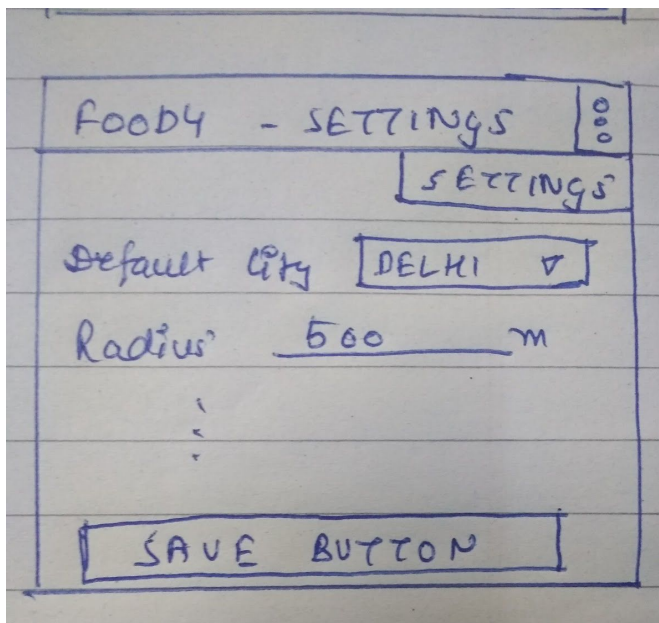 FOODY - SETTINGS
SETTINGS
Default City DELHI
Radius 500 m
SAVE BUTTON